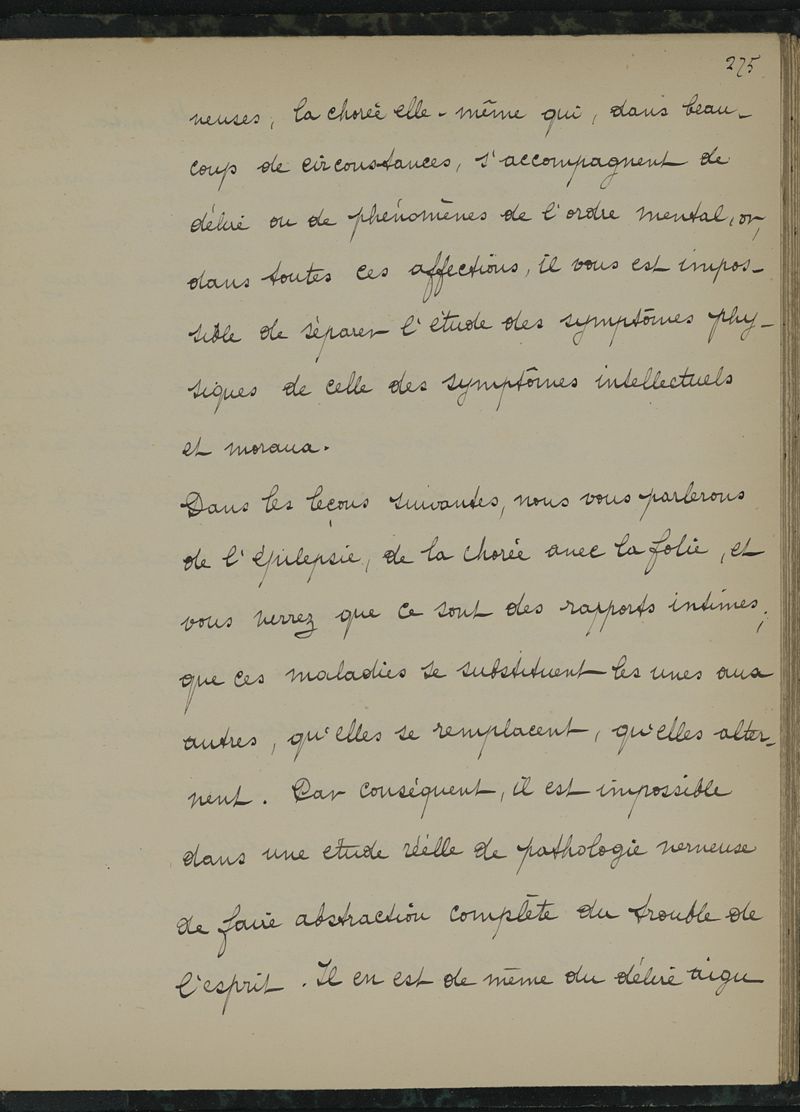 275
neuses, la chorée elle-même qui, dans beau-
coup de circonstances, s'accompagnent de
délire ou de phénomènes de l'ordre mental, or,
dans toutes ces affections, il vous est impos-
sible de séparer l'étude des symptômes phy-
siques de celle des symptômes intellectuels
et moraux.
Dans les leçons suivantes, nous vous parlerons
de l'épilepsie, de la chorée avec la folie, et
vous verrez que ce sont des rapports intimes,
que ces maladies se substituent les unes aux
autres, qu'elles se remplacent, qu'elles alter-
nent. Par conséquent, il est impossible
dans une étude réelle de pathologie nerveuse
de faire abstraction complète du trouble de
l'esprit. Il en est de même du délire aigu